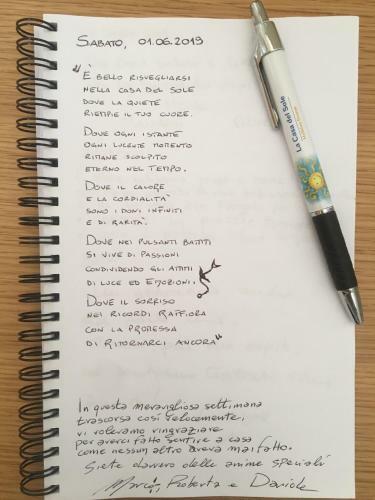 SABATO, 01.06.2019
"È BELLO RISVEGLIARSI
NELLA CASA DEL SOLE
DOVE LA QUIETE
RIEMPIE IL TUO CUORE.
DOVE OGNI ISTANTE
OGNI LUCENTE MOMENTO
RIMANE SCOLPITO
ETERNO NEL TEMPO.
DOVE IL CALORE
E LA CORDIALITÀ
SONO I DONI INFINITI
E DI RARITÀ.
DOVE NEI PULSANTI BATTITI
SI VIVE DI PASSIONI
CONDIVIDENDO GLI ATTIMI
DI LUCE ED EMOZIONI.
DOVE IL SORRISO
NEI RICORDI RAFFIORA
CON LA PROMESSA
DI RITORNARCI ANCORA"
In questa meravigliosa settimana
trascorsa così velocemente,
vi volevamo ringraziare
per averci fatto sentire a casa
come nessun altro aveva mai fatto.
Siete davvero delle anime speciali
Marco, Roberta e Davide
La Casa del Sole